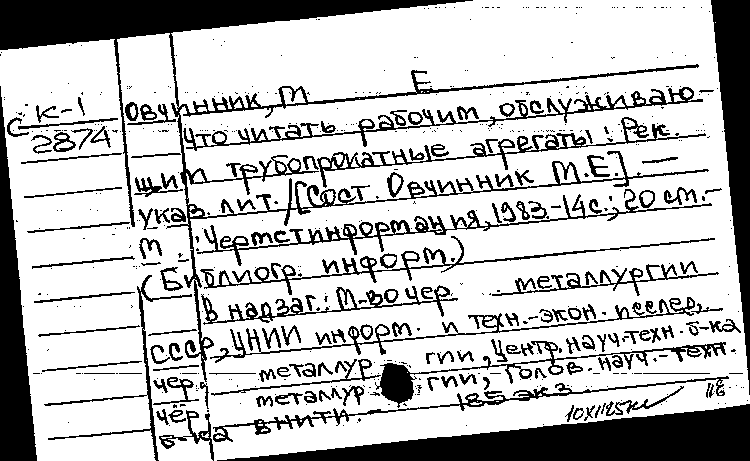 К-1 Овчинник, М Е
С 2874 Что читать рабочим, обслуживаю-
щим трубопрокатные агрегаты: Рек.
указ. лит. /[Сост. Овчинник М.Е]. —
М.: Черметинформация, 1983-14с.; 20 см.-
(Библиогр. информ.)
В надзаг.: М-во чер металлургии
СССР, ЦНИИ информ. и техн.-экон. исслед,
чер. металлур гии, Центр. науч.-техн. б-ка
чёр. металлур гии, Голов. науч.-техн.
б-ка ВНИТИ. - 185 экз
118